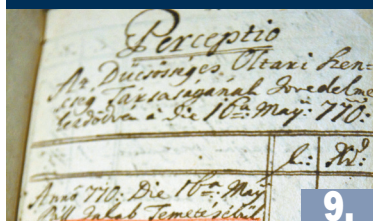 Perceptio
Az Ducsösinges Oltari Szen-
cseg Társaságának Jövedelme
a Die 16ta May: 770:
f: Xr:
Anno 770: Die 16ta May
Jakab Temetesébül
9.